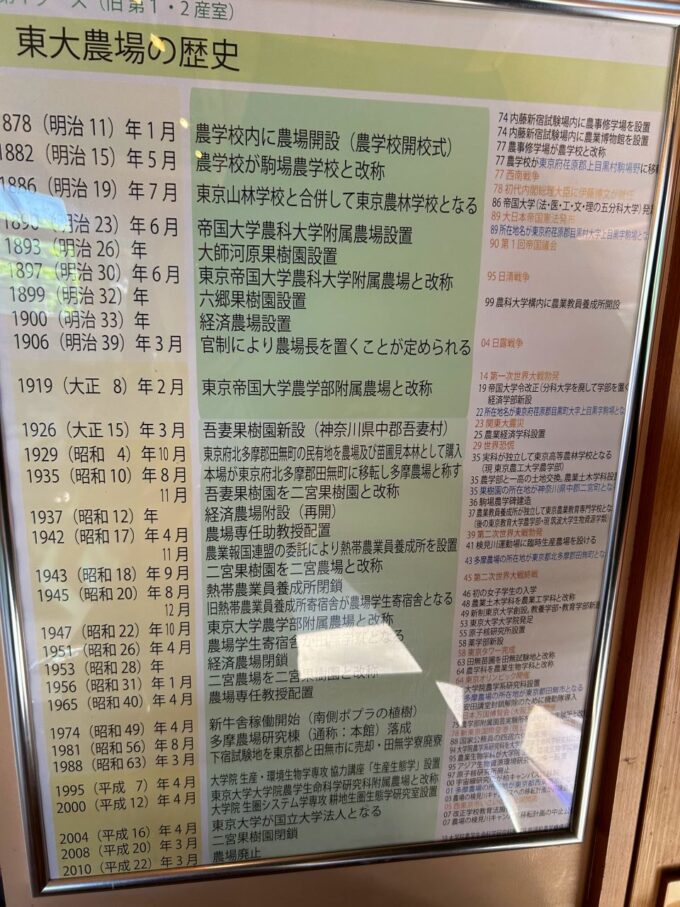 第1ブース（旧 第1・2産室）
東大農場の歴史
1878（明治 11）年 1月 農学校内に農場開設（農学校開校式）
1882（明治 15）年 5月 農学校が駒場農学校と改称
1886（明治 19）年 7月 東京山林学校と合併して東京農林学校となる
1890（明治 23）年 6月 帝国大学農科大学附属農場設置
1893（明治 26）年 大師河原果樹園設置
1897（明治 30）年 6月 東京帝国大学農科大学附属農場と改称
1899（明治 32）年 六郷果樹園設置
1900（明治 33）年 経済農場設置
1906（明治 39）年 3月 官制により農場長を置くことが定められる
1919（大正 8）年 2月 東京帝国大学農学部附属農場と改称
1926（大正 15）年 3月 吾妻果樹園新設（神奈川県中郡吾妻村）
1929（昭和 4）年 10月 東京府北多摩郡田無町の民有地を農場及び苗圃見本林として購入
1935（昭和 10）年 8月 本場が東京府北多摩郡田無町に移転し多摩農場と称す
11月 吾妻果樹園を二宮果樹園と改称
1937（昭和 12）年 経済農場附設（再開）
1942（昭和 17）年 4月 農場専任助教授配置
11月 農業報国連盟の委託により熱帯農業員養成所を設置
1943（昭和 18）年 9月 二宮果樹園を二宮農場と改称
1945（昭和 20）年 8月 熱帯農業員養成所閉鎖
12月 旧熱帯農業員養成所寄宿舎が農場学生寄宿舎となる
1947（昭和 22）年 10月 東京大学農学部附属農場と改称
1951（昭和 26）年 4月 農場学生寄宿舎が
1953（昭和 28）年 経済農場閉鎖
1956（昭和 31）年 1月 二宮農場を二宮果樹園と改称
1965（昭和 40）年 4月 農場専任教授配置
1974（昭和 49）年 4月 新牛舎稼働開始（南側ポプラの植樹）
1981（昭和 56）年 8月 多摩農場研究棟（通称：本館）落成
1988（昭和 63）年 3月 下宿試験地を東京都と田無市に売却・田無学寮廃寮
1995（平成 7）年 4月 大学院 生産・環境生物学専攻 協力講座「生産生態学」設置
2000（平成 12）年 4月 東京大学大学院農学生命科学研究科附属農場と改称
大学院 生圏システム学専攻 耕地生圏生態学研究室設置
2004（平成 16）年 4月 東京大学が国立大学法人となる
2008（平成 20）年 3月 二宮果樹園閉鎖
2010（平成 22）年 3月 農場廃止
74 内藤新宿試験場内に農事修学場を設置
74 内藤新宿試験場内に農業博物館を設置
77 農事修学場が農学校と改称
77 農学校が東京府荏原郡上目黒村駒場野に移
77 西南戦争
78 初代内閣総理大臣に伊藤博文が就任
86 帝国大学（法・医・工・文・理の五分科大学）発
89 大日本帝国憲法発布
89 所在地名が東京府荏原郡目黒村大字上目黒字駒場とな
90 第1回帝国議会
95 日清戦争
99 農科大学構内に農業教員養成所開設
04 日露戦争
14 第一次世界大戦勃発
19 帝国大学令改正（分科大学を廃して学部を置く
経済学部新設
22 所在地名が東京府荏原郡目黒町大字上目黒字駒場とな
23 関東大震災
25 農業経済学科設置
29 世界恐慌
35 実科が独立して東京高等農林学校となる
（現 東京農工大学農学部）
35 農学部と一高の土地交換。農業土木学科設
35 果樹園の所在地が神奈川県中郡二宮町とな
36 駒場農学碑建造
37 農業教員養成所が独立して東京農業教育専門学校と
（後の東京教育大学農学部・現 筑波大学生物資源学類）
39 第二次世界大戦勃発
41 検見川運動場に臨時生産農場を設ける
43 多摩農場の所在地が東京都北多摩郡田無町と
45 第二次世界大戦終戦
46 初の女子学生の入学
48 農業土木学科を農業工学科と改称
49 新制東京大学創設。教養学部・教育学部新設
53 東京大学大学院発足
55 原子核研究所設置
58 薬学部新設
58 東京タワー完成
63 田無苗圃を田無試験地と改称
64 農学科を農業生物学科と改称
64 東京オリンピック開催
大学院農学系研究科設置
多摩農場の所在地が東京都田無市となる
安田講堂封鎖解除のために機動隊導入